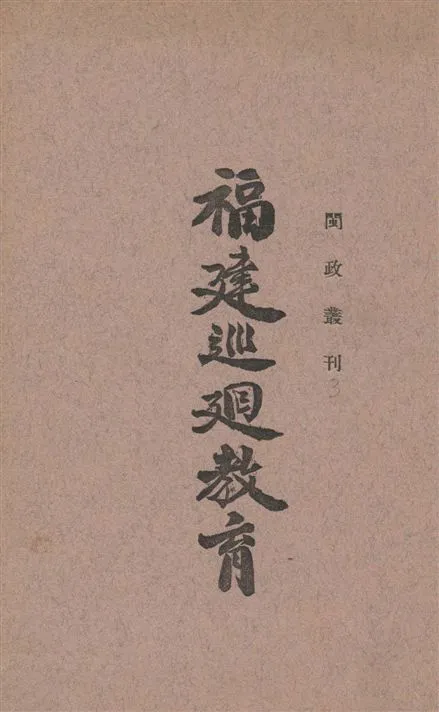 閩政叢刊3
福建巡廻教育